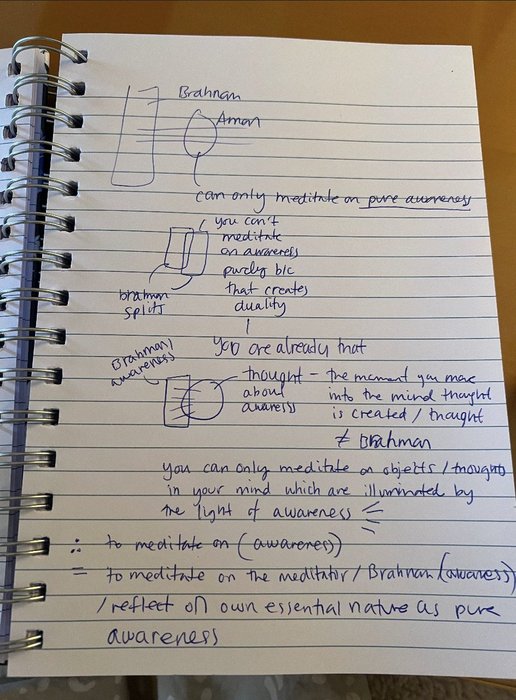 Brahman
Aman
can only meditate on pure awareness
you can't
meditate
on awareness
purely b/c
that creates
duality
brahman
splits
you are already that
Brahman/
awareness
thought - the moment you move
about into the mind thought
awaress is created / thought
≠ Brahman
you can only meditate on objects / thoughts
in your mind which are illuminated by
the light of awareness
∴ to meditate on (awareness)
= to meditate on the meditator / Brahman (awaress)
/ reflect on own essential nature as pure
awareness